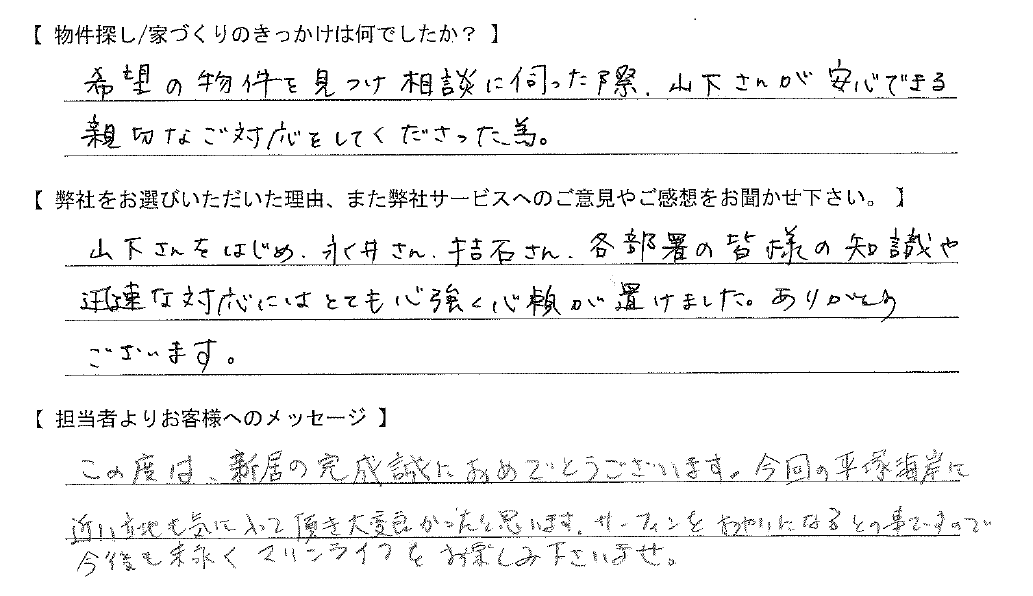 【 物件探し/家づくりのきっかけは何でしたか？ 】
希望の物件を見つけ相談に伺った際、山下さんが安心できる
親切なご対応をしてくださった為。
【 弊社をお選びいただいた理由、また弊社サービスへのご意見やご感想をお聞かせ下さい。 】
山下さんをはじめ、永井さん、桔石さん、各部署の皆様の知識や
迅速な対応にはとても心強く心頼が置けました。ありがとう
ございます。
【 担当者よりお客様へのメッセージ 】
この度は、新居の完成誠におめでとうございます。今回の平塚海岸に
近い立地も気に入って頂き大変良かったと思います。サーフィンをおやりになるとの事ですので
今後も末永くマリンライフをお楽しみ下さいませ。